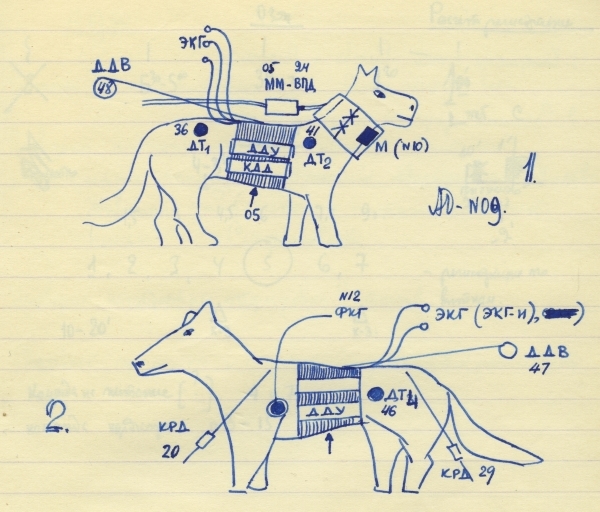 ЭКГ
ДДВ
48
05 94
ММ-ВПД
36
ДТ₁
41
ДТ₂
ДДУ
КДД
М (N10)
05
1.
N12
ФКГ
ЭКГ (ЭКГ-И),
ДДВ
47
ДДУ
ДТ
46
2.
КРД
20
КРД 29